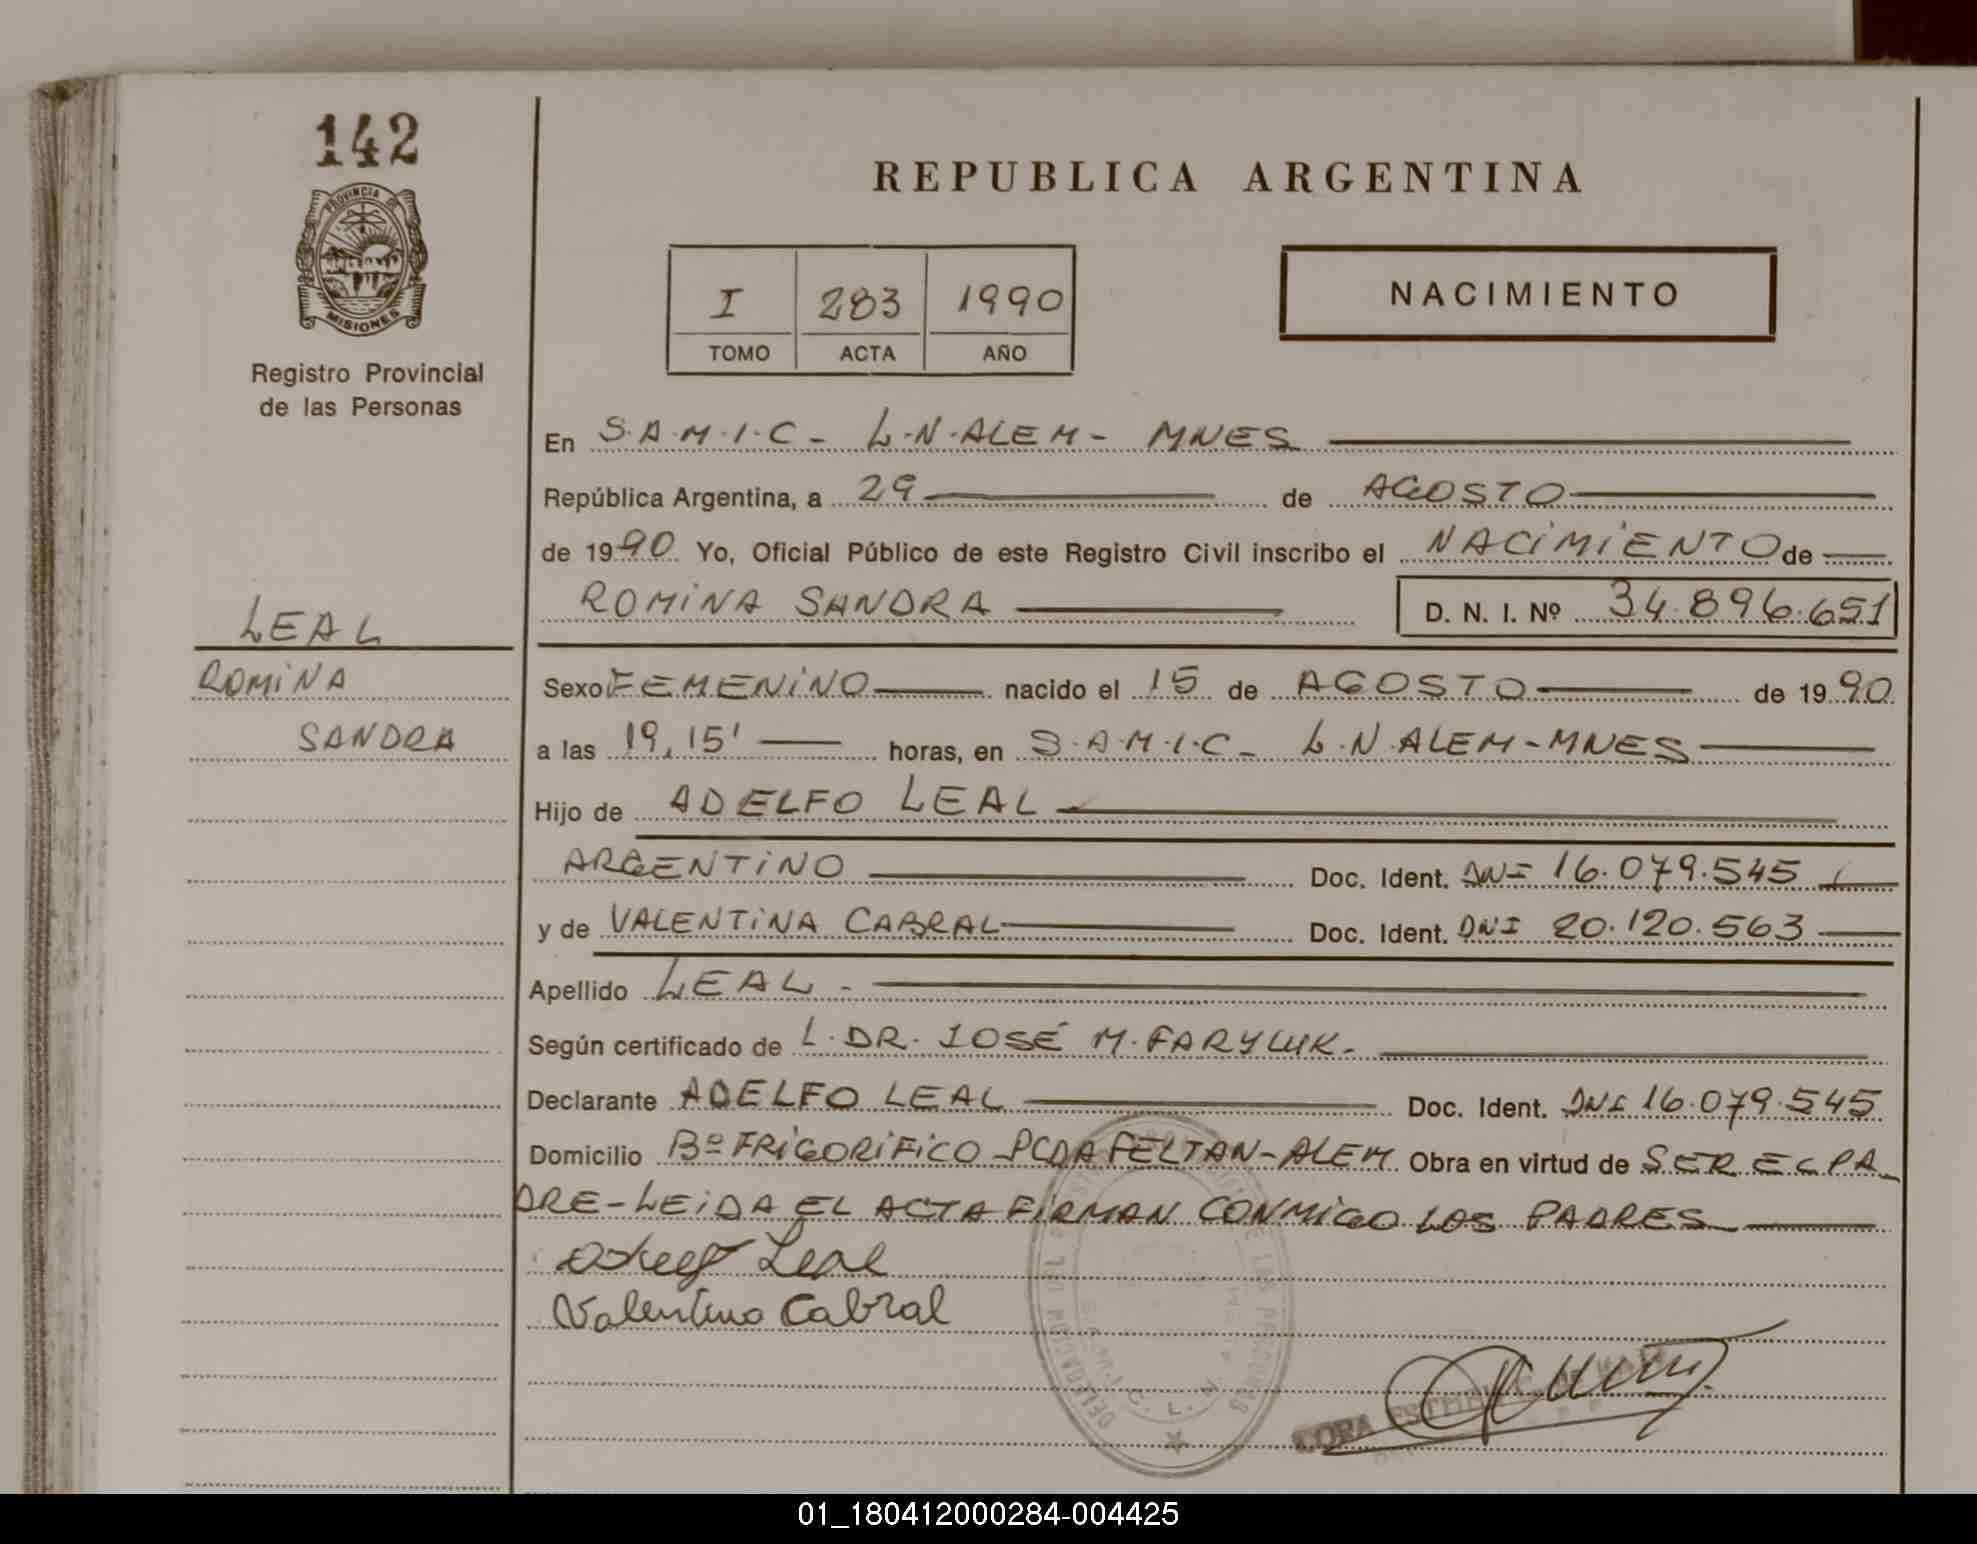 142
PROVINCIA DE
MISIONES
Registro Provincial
de las Personas
REPUBLICA ARGENTINA
I 283 1990
TOMO ACTA AÑO
NACIMIENTO
En S.A.M.I.C - L.N.ALEM - MNES
República Argentina, a 29 de AGOSTO
de 1990 Yo, Oficial Público de este Registro Civil inscribo el NACIMIENTO de
ROMINA SANDRA D. N. I. Nº 34.896.651
LEAL
ROMINA
SANDRA
Sexo FEMENINO nacido el 15 de AGOSTO de 1990
a las 19,15' horas, en S.A.M.I.C - L.N.ALEM-MNES
Hijo de ADELFO LEAL
ARGENTINO Doc. Ident. DNI 16.079.545
y de VALENTINA CABRAL Doc. Ident. DNI 20.120.563
Apellido LEAL -
Según certificado de L. DR. JOSÉ M. FARYLUK-
Declarante ADELFO LEAL Doc. Ident. DNI 16.079.545
Domicilio Bº FRIGORIFICO PCDA FELTAN-ALEM Obra en virtud de SER EL PA-
DRE-LEIDA EL ACTA FIRMAN CONMIGO LOS PADRES
Leal
Valentina Cabral
DELEGACION DEL LAS PERSONAS
ESTHER
01_180412000284-004425